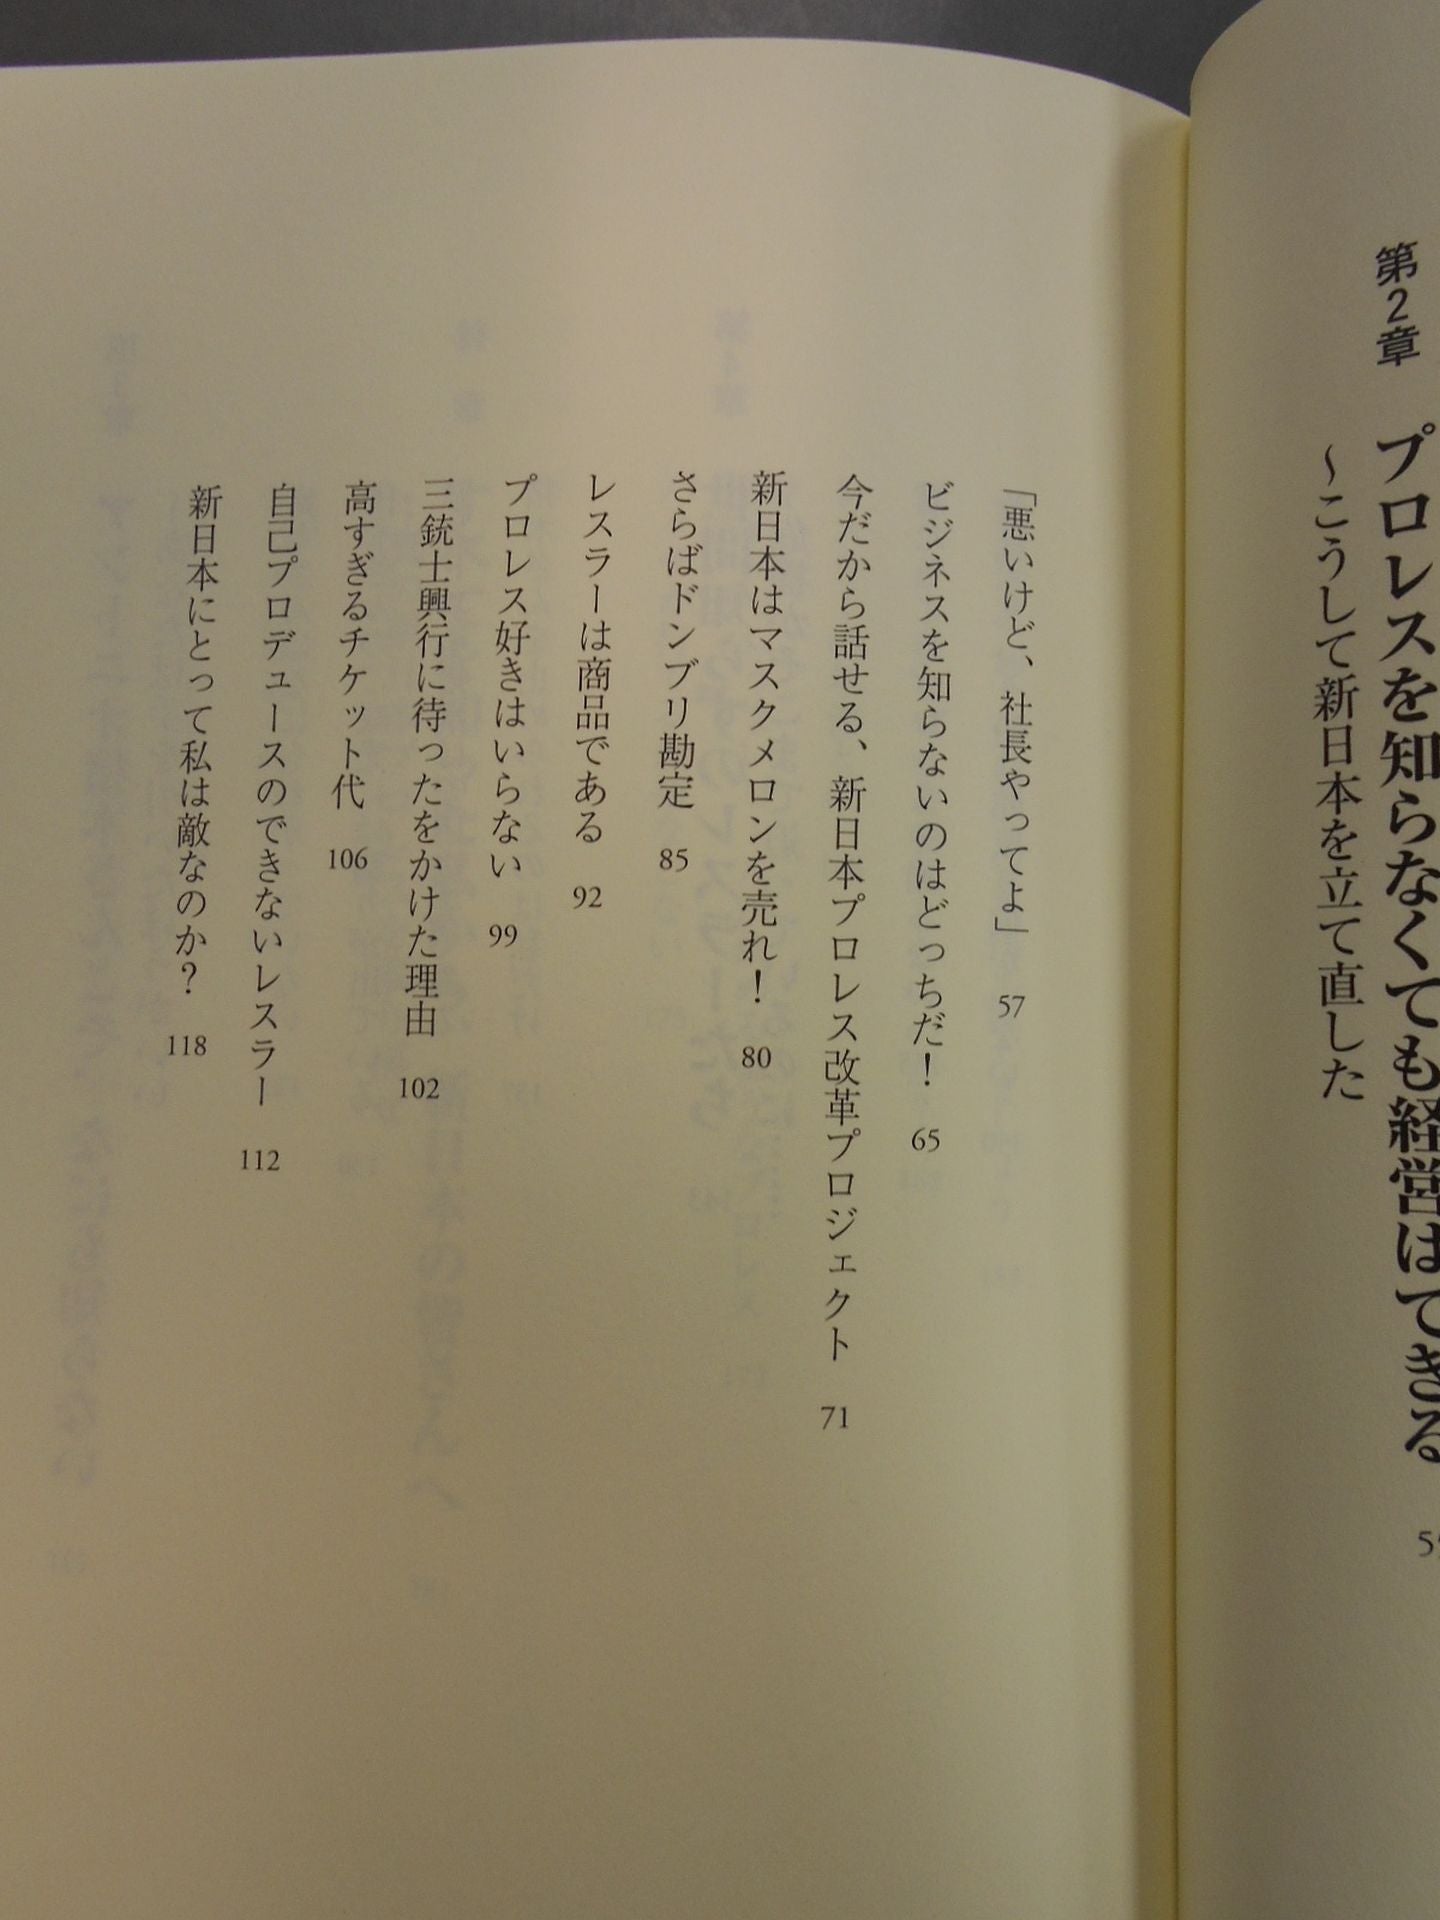 第2章 プロレスを知らなくても経営はできる
～こうして新日本を立て直した
「悪いけど、社長やってよ」 57
ビジネスを知らないのはどっちだ！ 65
今だから話せる、新日本プロレス改革プロジェクト 71
新日本はマスクメロンを売れ！ 80
さらばドンブリ勘定 85
レスラーは商品である 92
プロレス好きはいらない 99
三銃士興行に待ったをかけた理由 102
高すぎるチケット代 106
自己プロデュースのできないレスラー 112
新日本にとって私は敵なのか？ 118